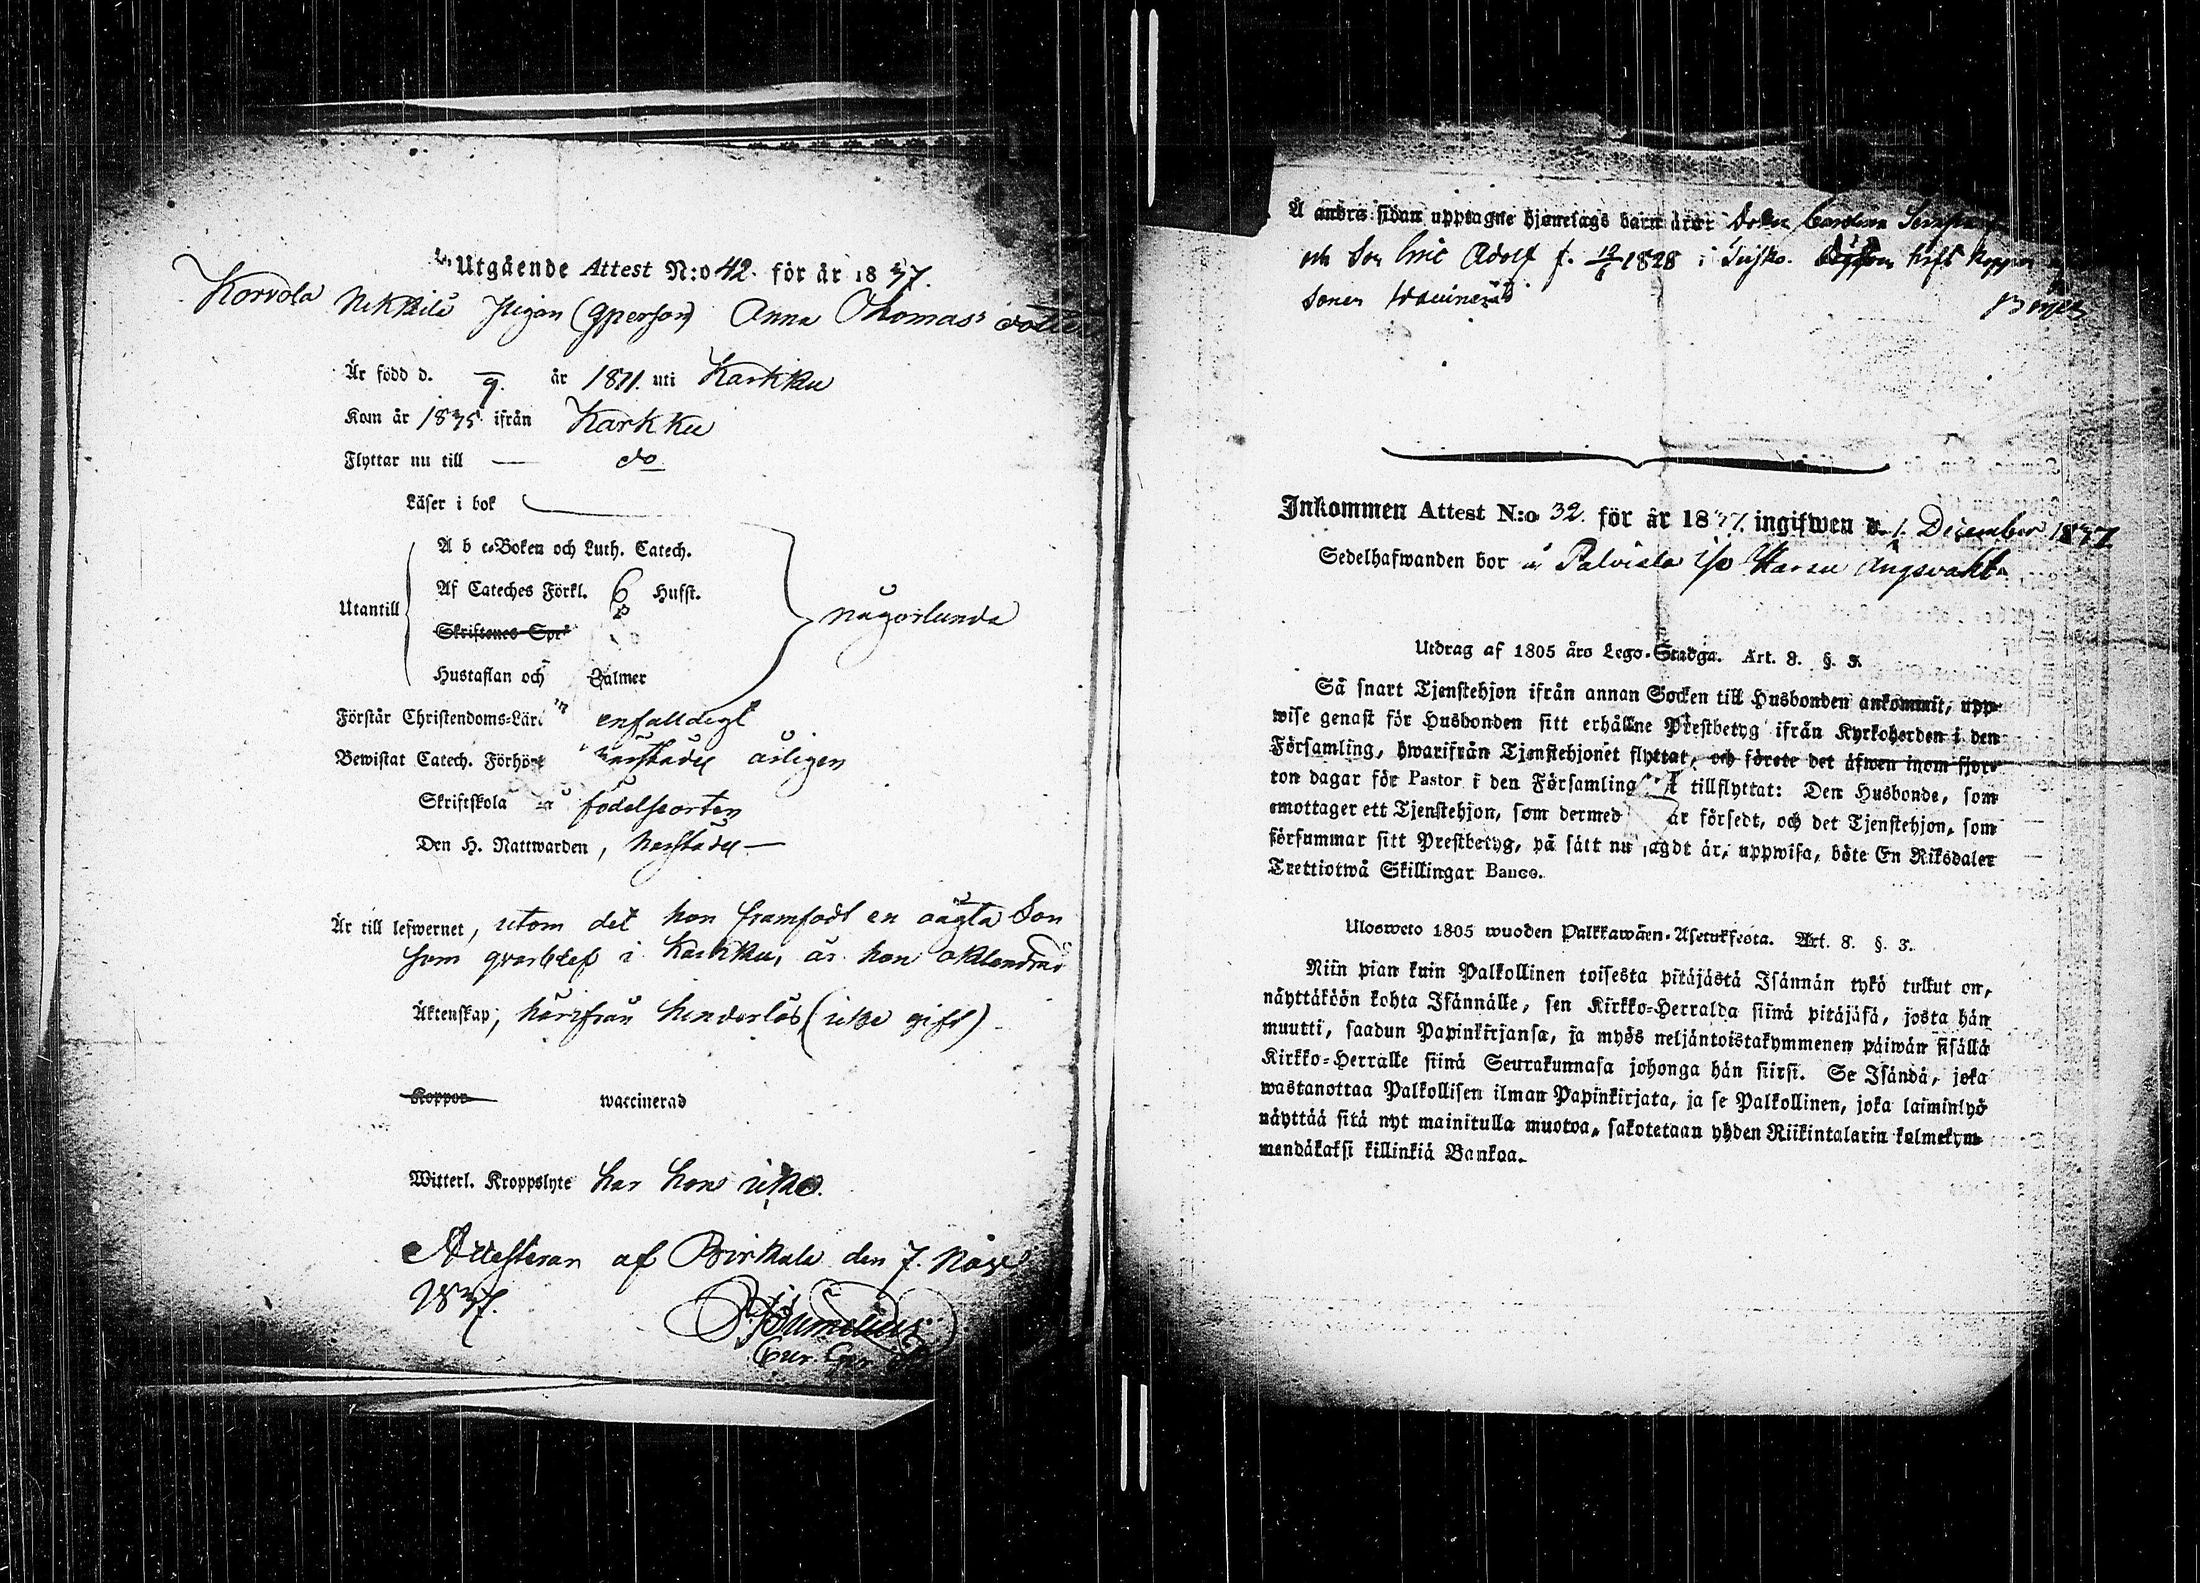 Utgående Attest N:o 42. för år 1837.
Korvola Nikkilä Pigan (qperson) Anna Thomasdotter
Är född d. 9. år 1811. uti Karkku
Kom år 1835. ifrån Karkku
Flyttar nu till — do
Läser i bok
A b c-Boken och Luth. Catech.
Af Cateches Förkl. 6 Hufst.
Utantill
någorlunda
Skriftenes Spr
Hustaflan och Psalmer
Förstår Christendoms-Lär. enfalldigt
Bewistat Catech. Förhör årligen
Skriftskola födelseorten
Den H. Nattwarden,
Är till lefwernet, utom det hon framfödt en oägta Son
som qvarblef i Karkku, är hon oklandrad
Äktenskap, härifrån hinderlös (icke gift)
Koppor waccinerad
Witterl. Kroppslyte har hon icke.
Attesteras af Birkala den 7. Nov
1837.
Å andra sidan upptagne hjonelags barn äro: Carolina
och Son Eric Adolf f. 12/6 1828 i
Sonen Vaccinerad
Inkommen Attest N:o 32. för år 1837. ingifwen d. 1. December 1837
Sedelhafwanden bor å Palviala
Utdrag af 1805 års Lego-Stadga. Art. 8. §. 3.
Så snart Tjenstehjon ifrån annan Socken till Husbonden ankommit, upp-
wise genast för Husbonden sitt erhållne Prestbetyg ifrån Kyrkoherden i den
Församling, hwarifrån Tjenstehjonet flyttat, och förete det äfwen inom fjor-
ton dagar för Pastor i den Församling tillflyttat: Den Husbonde, som
emottager ett Tjenstehjon, som dermed är försedt, och det Tjenstehjon, som
försummar sitt Prestbetyg, på sätt nu sagdt är, uppwisa, böte En Riksdaler
Trettiotwå Skillingar Banco.
Uloswето 1805 wuoden Palkkawäen-Asetuksesta. Art. 8. §. 3.
Niin pian kuin Palkollinen toisesta pitäjästä Isännän tykö tullut on,
näyttäköön kohta Isännälle, sen Kirkko-Herralda siinä pitäjäsä, josta hän
muutti, saadun Papinkirjansa, ja myös neljäntoistakymmenen päiwän sisällä
Kirkko-Herralle siinä Seurakunnasa johonga hän siirsi. Se Isändä, joka
wastanottaa Palkollisen ilman Papinkirjata, ja se Palkollinen, joka laiminlyö
näyttää sitä nyt mainitulla muotoa, sakotetaan yhden Riikintalarin kolmekym-
mendäkaksi killinkiä Bankoa.